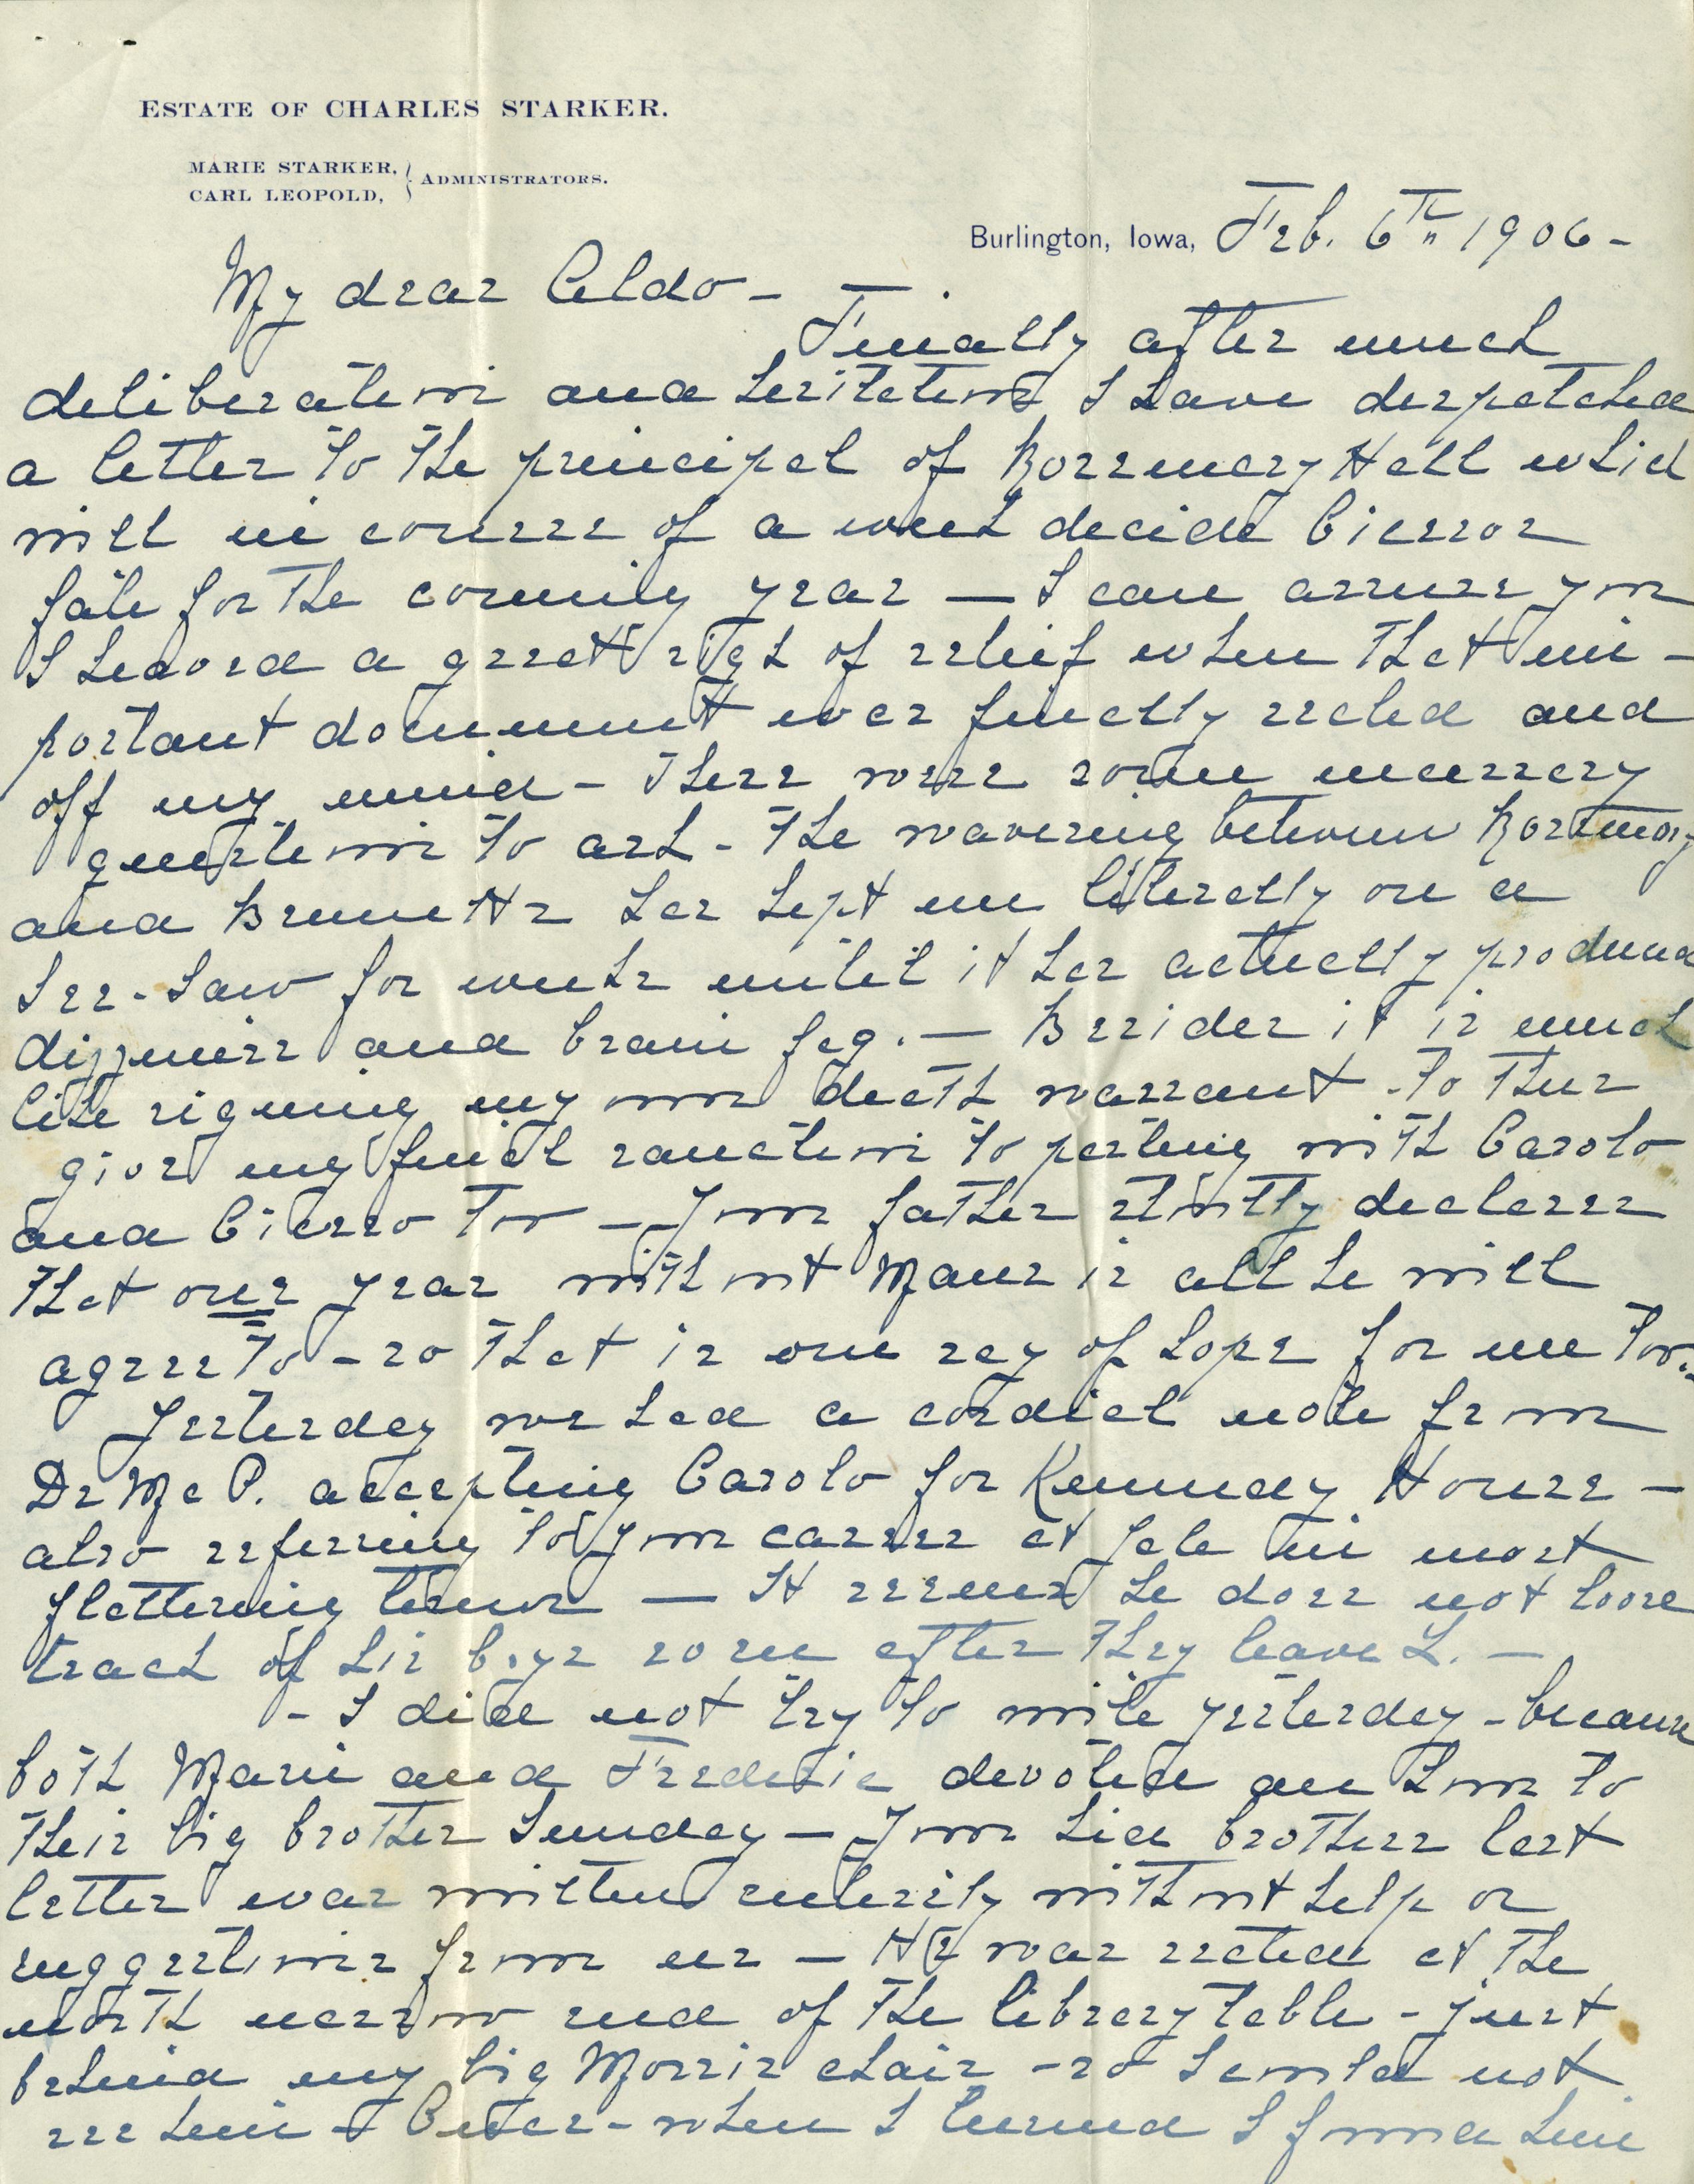 ESTATE OF CHARLES STARKER.
MARIE STARKER,
CARL LEOPOLD,
ADMINISTRATORS.
Burlington, Iowa, Feb. 6th 1906-
My dear Aldo-
Finally after much
deliberation and hesitation I have despatched
a letter to the principal of Rosemary Hall which
will in course of a week decide
fate for the coming year — I can assure you
I heaved a great sigh of relief when that im-
portant document was finally sealed and
off my mind - There were some necessary
questions to ask - The wavering between Rosemary
and Bennett has kept me literally on a
See-Saw for weeks until it has actually produced
dizziness and brain fag. — Besides it is much
like signing my own death warrant - to thus
give my final sanction to parting with Carolo
and too — Your father stoutly declares
that one year without Mans is all he will
agree to - so that is one ray of hope for me too.
Yesterday we had a cordial note from
Dr Mc P. accepting Carolo for Kennedy House —
also referring to your career at Yale in most
flattering terms — It seems he does not loose
track of his boys soon after they leave L. —
- I did not try to write yesterday - because
both Marie and Frederic devoted an hour to
their big brother Sunday — Your kid brothers last
letter was written entirely without help or
suggestions from us — He was seated at the
north narrow end of the library table - just
behind my big Morris chair - so I could not
see him - when I turned I found him